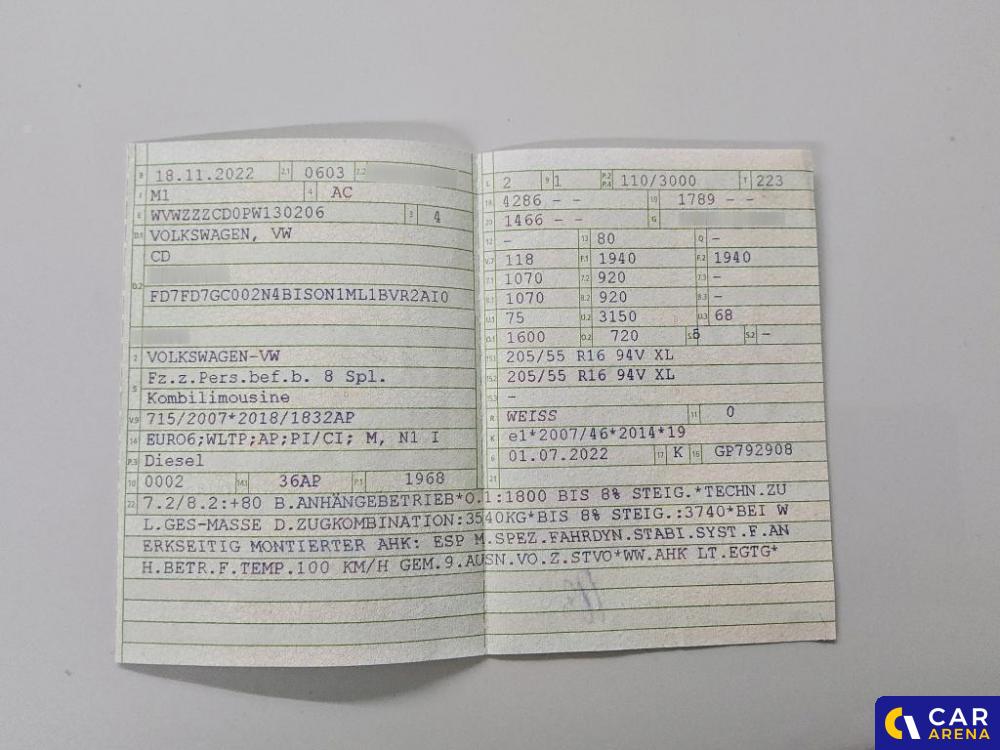 B 18.11.2022 2.1 0603 2.2
J M1 4 AC
E WVWZZZCD0PW130206 3 4
D.1 VOLKSWAGEN, VW
CD
D.2
FD7FD7GC002N4BISON1ML1BVR2AI0
2 VOLKSWAGEN-VW
5 Fz.z.Pers.bef.b. 8 Spl.
Kombilimousine
V.9 715/2007*2018/1832AP
14 EURO6;WLTP;AP;PI/CI; M, N1 I
P.3 Diesel
10 0002 14.1 36AP P.1 1968
L 2 9 1 P.2 P.4 110/3000 T 223
18 4286 - - 19 1789 - -
20 1466 - - G
12 - 13 80 Q -
V.7 118 F.1 1940 F.2 1940
7.1 1070 7.2 920 7.3 -
8.1 1070 8.2 920 8.3 -
U.1 75 U.2 3150 U.3 68
O.1 1600 O.2 720 S.1 5 S.2 -
15.1 205/55 R16 94V XL
15.2 205/55 R16 94V XL
15.3 -
R WEISS 11 0
K e1*2007/46*2014*19
6 01.07.2022 17 K 16 GP792908
21
22 7.2/8.2:+80 B.ANHÄNGEBETRIEB*O.1:1800 BIS 8% STEIG.*TECHN.ZU
L.GES-MASSE D.ZUGKOMBINATION:3540KG*BIS 8% STEIG.:3740*BEI W
ERKSEITIG MONTIERTER AHK: ESP M.SPEZ.FAHRDYN.STABI.SYST.F.AN
H.BETR.F.TEMP.100 KM/H GEM.9.AUSN.VO.Z.STVO*WW.AHK LT.EGTG*
CAR
ARENA